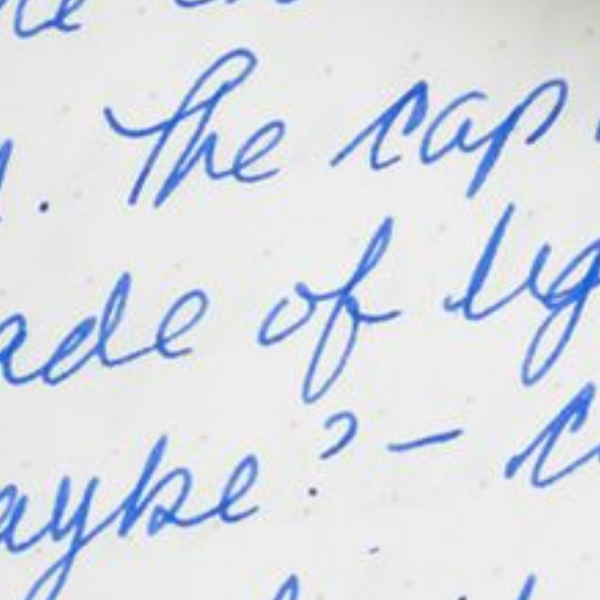 . The cap
ade of lig
aybe? - c